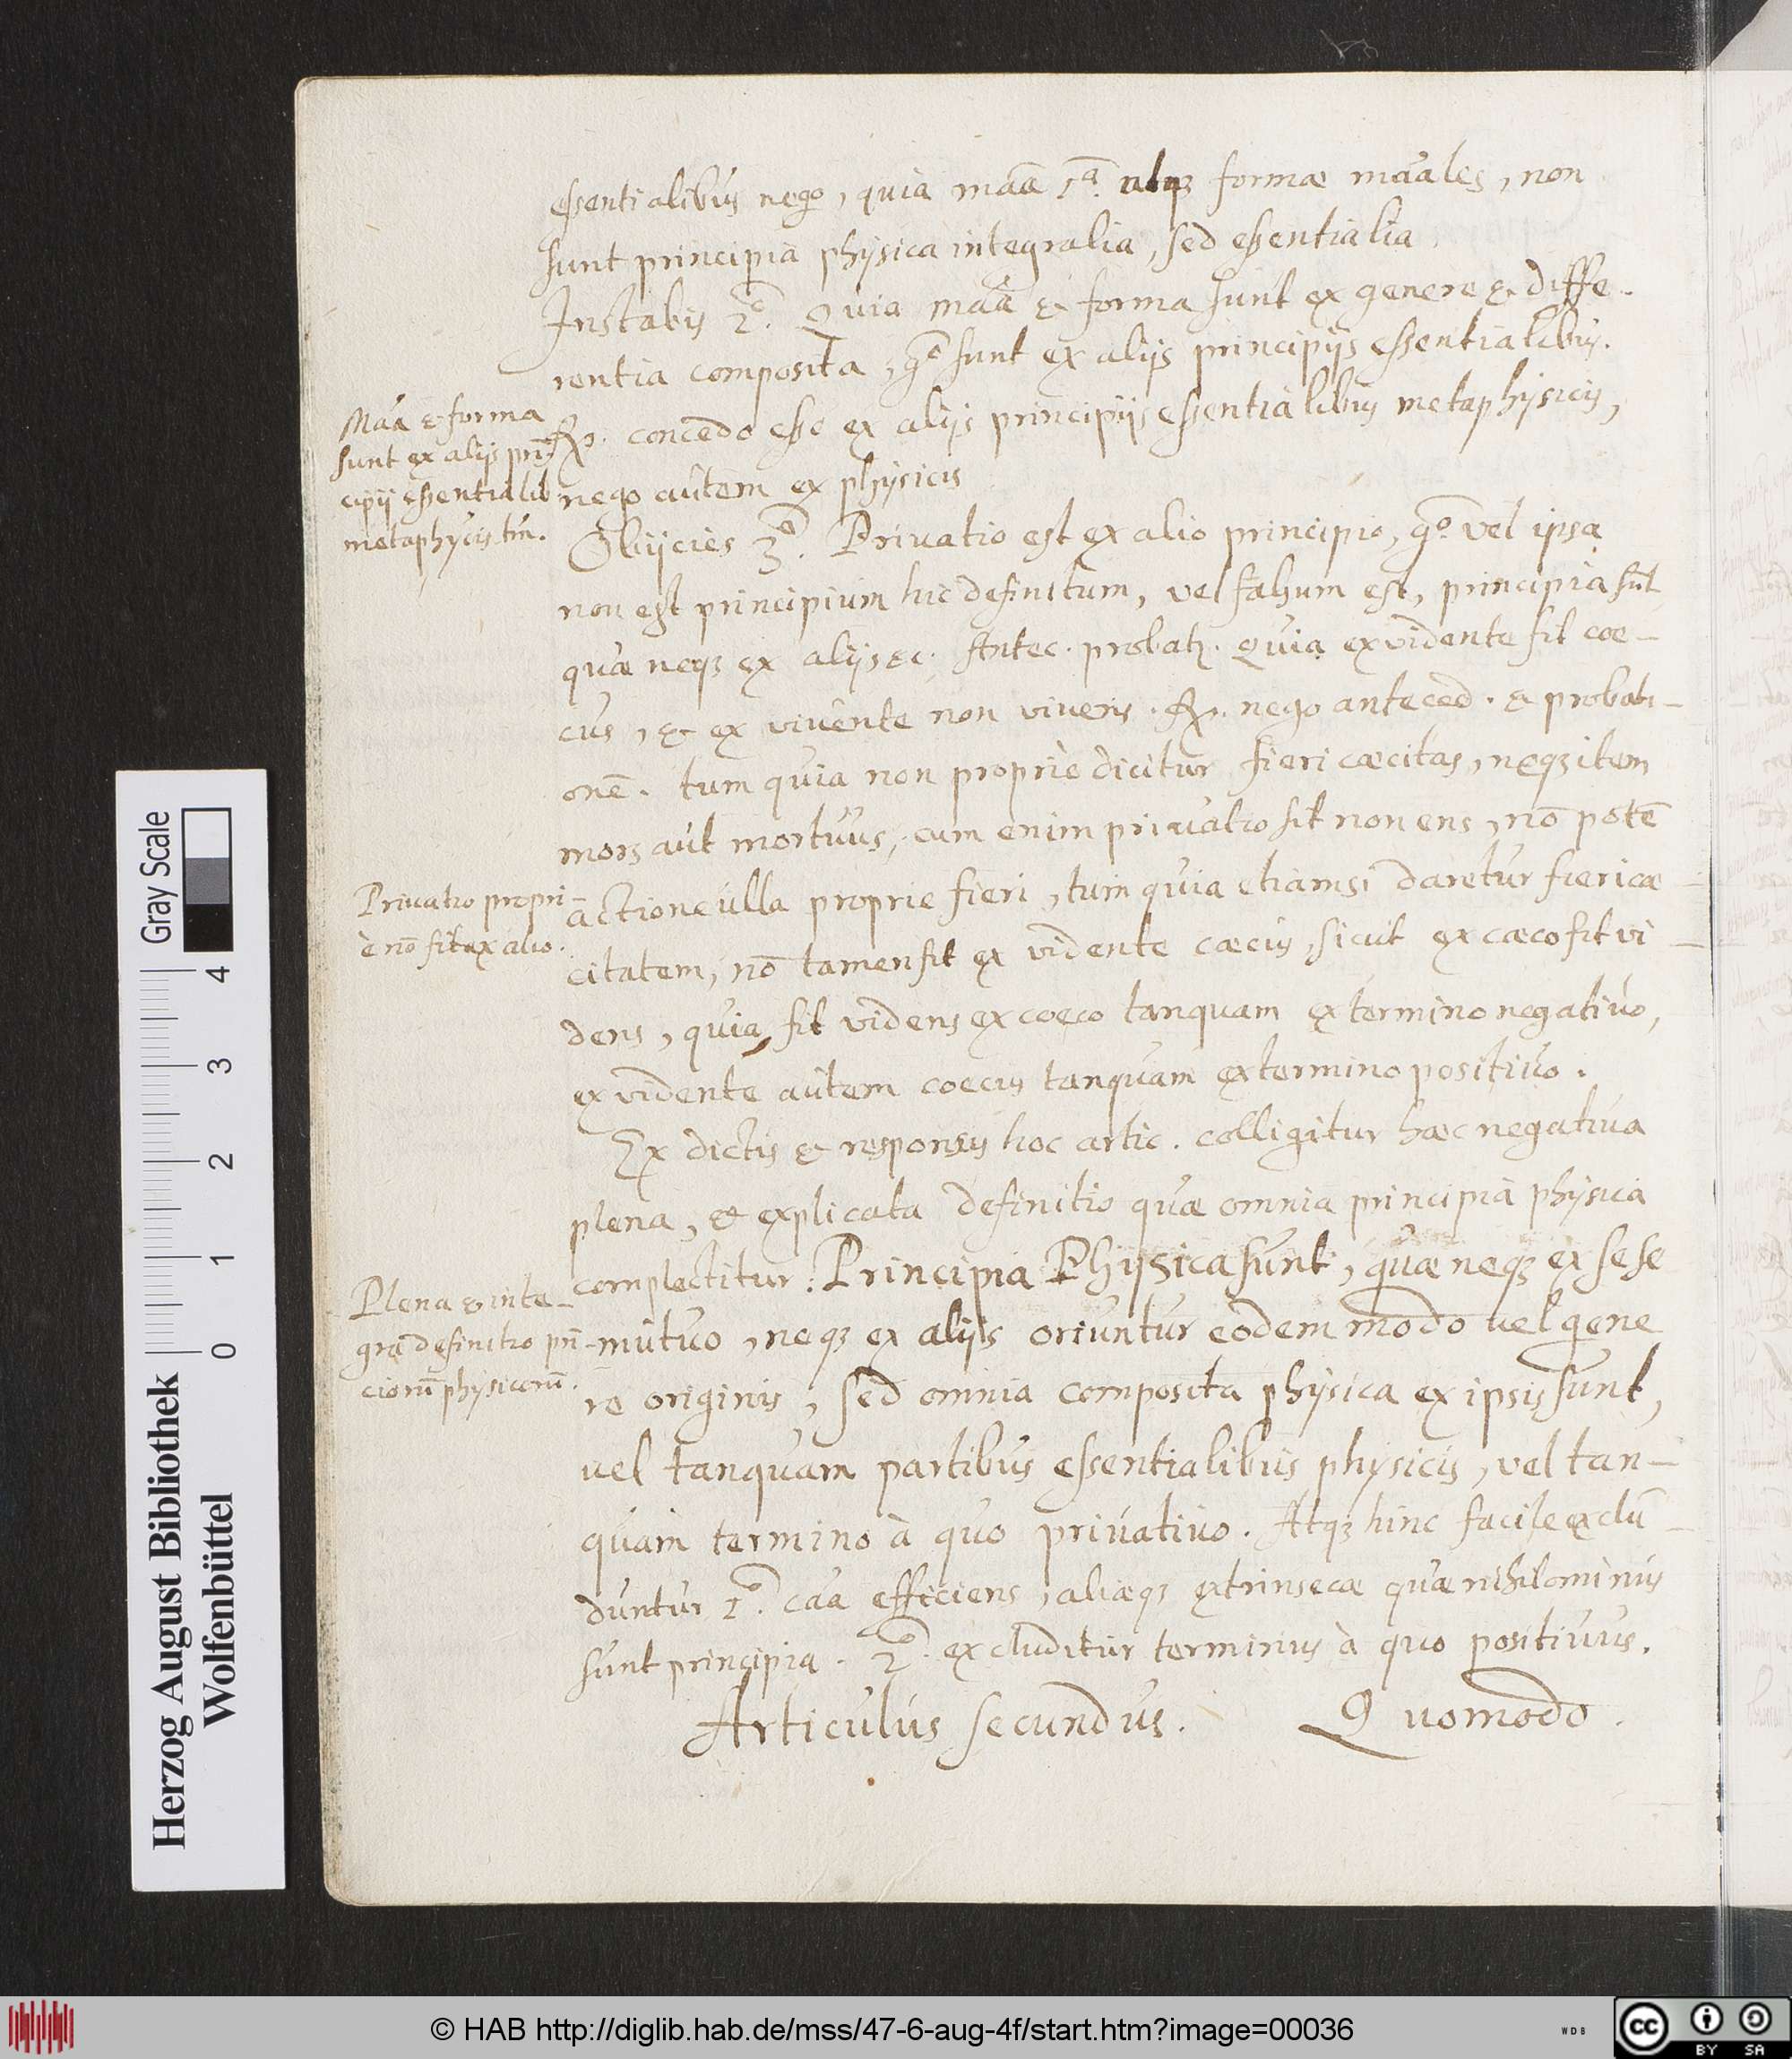 essentialibus nego, quia māa 1ª. atqȝ formæ māales, non
sunt principia physica integralia, sed essentialia.
Instabis 2º. Quia māa & forma sunt ex genere & diffe-
rentia composita, gº sunt ex alijs principijs essentialibus.
Māa & forma
sunt ex alijs prī-
cipij essentialib
metaphycis tm̄.
℞. concedo esse ex alijs principijs essentialibus metaphysicis,
nego autem ex physicis
Obijcies 3º. Priuatio est ex alio principio, gº vel ipsa
non est principium hic definitum, vel falsum est, principia sūt
quæ neqȝ ex alijs &c. Antec. probatȝ. Quia ex vidente fit coe-
cus, & ex vivente non vivens. ℞. nego anteced. & probati-
onē. tum quia non propriè dicitur fieri cæcitas, neqȝ item
mors aut mortuus, cum enim priuatio sit non ens, nō potē
Priuatio propri-
è nō fit ex alio.
actione ulla proprie fieri, tum quia etiamsi daretur fieri cæ-
citatem, nō tamen fit ex vidente cæcus, sicut ex cæco fit vi-
dens, quia fit videns ex coeco tanquam ex termino negativo,
ex vidente autem coecus tanquam ex termino positivo.
Ex dictis & responsis hoc artic. colligitur hæc negativa
plena, & explicata definitio quæ omnia principia physica
Plena & inte-
gra definitio prī-
ciorū physicorū.
complectitur: Principia Physica sunt, quæ neqȝ ex sese
mutuo, neqȝ ex alijs oriuntur eodem modo vel gene
re originis, sed omnia composita physica ex ipsis sunt,
vel tanquam partibus essentialibus physicis, vel tan-
quam termino à quo privativo. Atqȝ hinc facile exclū-
duntur 1º. cāa efficiens, aliæqȝ extrinsecæ quæ nihilominus
sunt principia. 2º. excluditur terminus à quo positivus.
Articulus secundus. Quomodo.
Herzog August Bibliothek
Wolfenbüttel
0 1 2 3 4
Gray Scale
© HAB http://diglib.hab.de/mss/47-6-aug-4f/start.htm?image=00036
WDB
cc BY SA